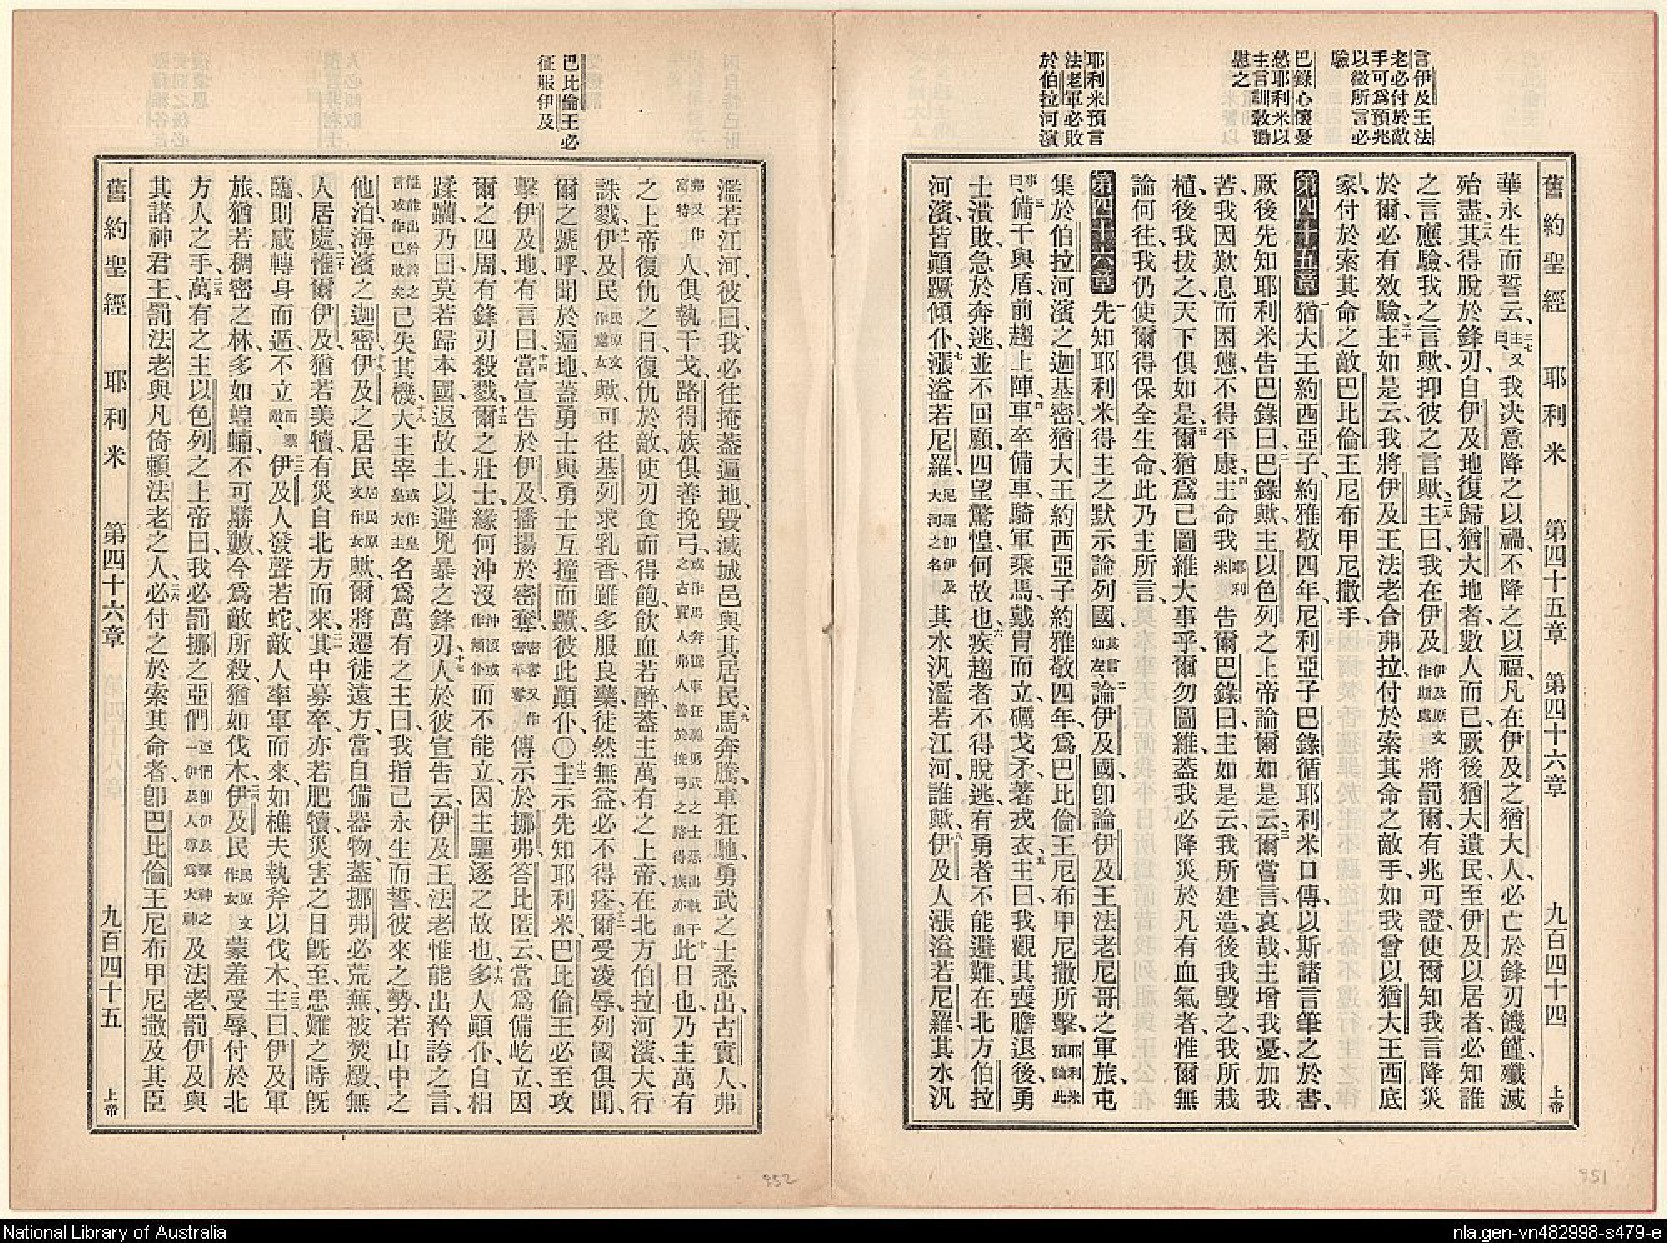 言伊及王法
老必付於敵
手可為預兆
以徵所言必
驗
巴錄心懷憂
愁耶利米以
主言訓敎勸
慰之
耶利米預言
法老軍必敗
於伯拉河濱
舊約聖經 耶利米 第四十五章 第四十六章 九百四十四 上帝
華永生而誓云主又曰我决意降之以禍不降之以福凡在伊及之猶大人必亡於鋒刃饑饉殲滅
殆盡其得脫於鋒刃自伊及地復歸猶大地者數人而已厥後猶大遺民至伊及以居者必知誰
之言應驗我之言歟抑彼之言歟主曰我在伊及伊及原文作斯處將罰爾有兆可證使爾知我言降災
於爾必有效驗主如是云我將伊及王法老合弗拉付於索其命之敵手如我曾以猶大王西底
家付於索其命之敵巴比倫王尼布甲尼撒手
第四十五章 猶大王約西亞子約雅敬四年尼利亞子巴錄循耶利米口傳以斯諸言筆之於書
厥後先知耶利米告巴錄曰巴錄歟主以色列之上帝諭爾如是云爾嘗言哀哉主增我憂加我
苦我因歎息而困憊不得平康主命我耶利米告爾巴錄曰主如是云我所建造後我毀之我所栽
植後我拔之天下俱如是爾猶爲己圖維大事乎爾勿圖維蓋我必降災於凡有血氣者惟爾無
論何往我仍使爾得保全生命此乃主所言
第四十六章 先知耶利米得主之默示論列國其言如左論伊及國卽論伊及王法老尼哥之軍旅屯
集於伯拉河濱之迦基密猶大王約西亞子約雅敬四年爲巴比倫王尼布甲尼撒所擊耶利米預論此
事曰備干與盾前趨上陣車卒備車騎軍乘馬戴胄而立礪戈矛著戎衣主曰我觀其喪膽退後勇
士潰敗急於奔逃並不回顧四望驚惶何故也疾趨者不得脫逃有勇者不能避難在北方伯拉
河濱皆顚蹶傾仆漲溢若尼羅尼羅卽伊及大河之名其水汎濫若江河誰歟伊及人漲溢若尼羅其水汎
巴比倫王必
征服伊及
濫若江河彼曰我必往掩蓋遍地毀滅城邑與其居民馬奔騰車狂馳勇武之士悉出古實人弗
弗又作富特人俱執干戈路得族俱善挽弓或作馬奔騰車狂馳勇武之士悉出執干戈之古實人弗人善於挽弓之路得族亦出此日也乃主萬有
之上帝復仇之日復仇於敵使刃食而得飽飲血若醉蓋主萬有之上帝在北方伯拉河濱大行
誅戮伊及民民原文作處女歟可往基列求乳香雖多服良藥徒然無益必不得痊爾受凌辱列國俱聞
爾之號呼聞於遍地蓋勇士與勇士互撞而蹶彼此顚仆〇主示先知耶利米巴比倫王必至攻
擊伊及地有言曰當宣告於伊及播揚於密奪密奪又作密奪傳示於挪弗答比匿云當爲備屹立因
爾之四周有鋒刃殺戮爾之壯士緣何沖沒沖沒或作傾仆而不能立因主驅逐之故也多人顚仆自相
蹂躪乃曰莫若歸本國返故土以避兇暴之鋒刃人於彼宣告云伊及王法老惟能出矜誇之言
惟能出矜誇之言或作已敗矣已失其機大主宰或作皇皇大主名爲萬有之主曰我指己永生而誓彼來之勢若山中之
他泊海濱之迦密伊及之居民居民原文作女歟爾將遷徙遠方當自備器物蓋挪弗必荒蕪被焚燬無
人居處惟爾伊及猶若美犢有災自北方而來其中募卒亦若肥犢災害之日旣至患難之時旣
臨則咸轉身而遁不立而禦敵伊及人發聲若蛇敵人率軍而來如樵夫執斧以伐木主曰伊及軍
旅猶若稠密之林多如蝗蝻不可勝數今爲敵所殺猶如伐木伊及民民原文作女蒙羞受辱付於北
方人之手萬有之主以色列之上帝曰我必罰挪之亞們亞們卽伊及羣神之一伊及人尊爲大神及法老罰伊及與
其諸神君王罰法老與凡倚賴法老之人必付之於索其命者卽巴比倫王尼布甲尼撒及其臣
舊約聖經 耶利米 第四十六章 九百四十五 上帝
852
851
National Library of Australia
nla.gen-vn482998-s479-e